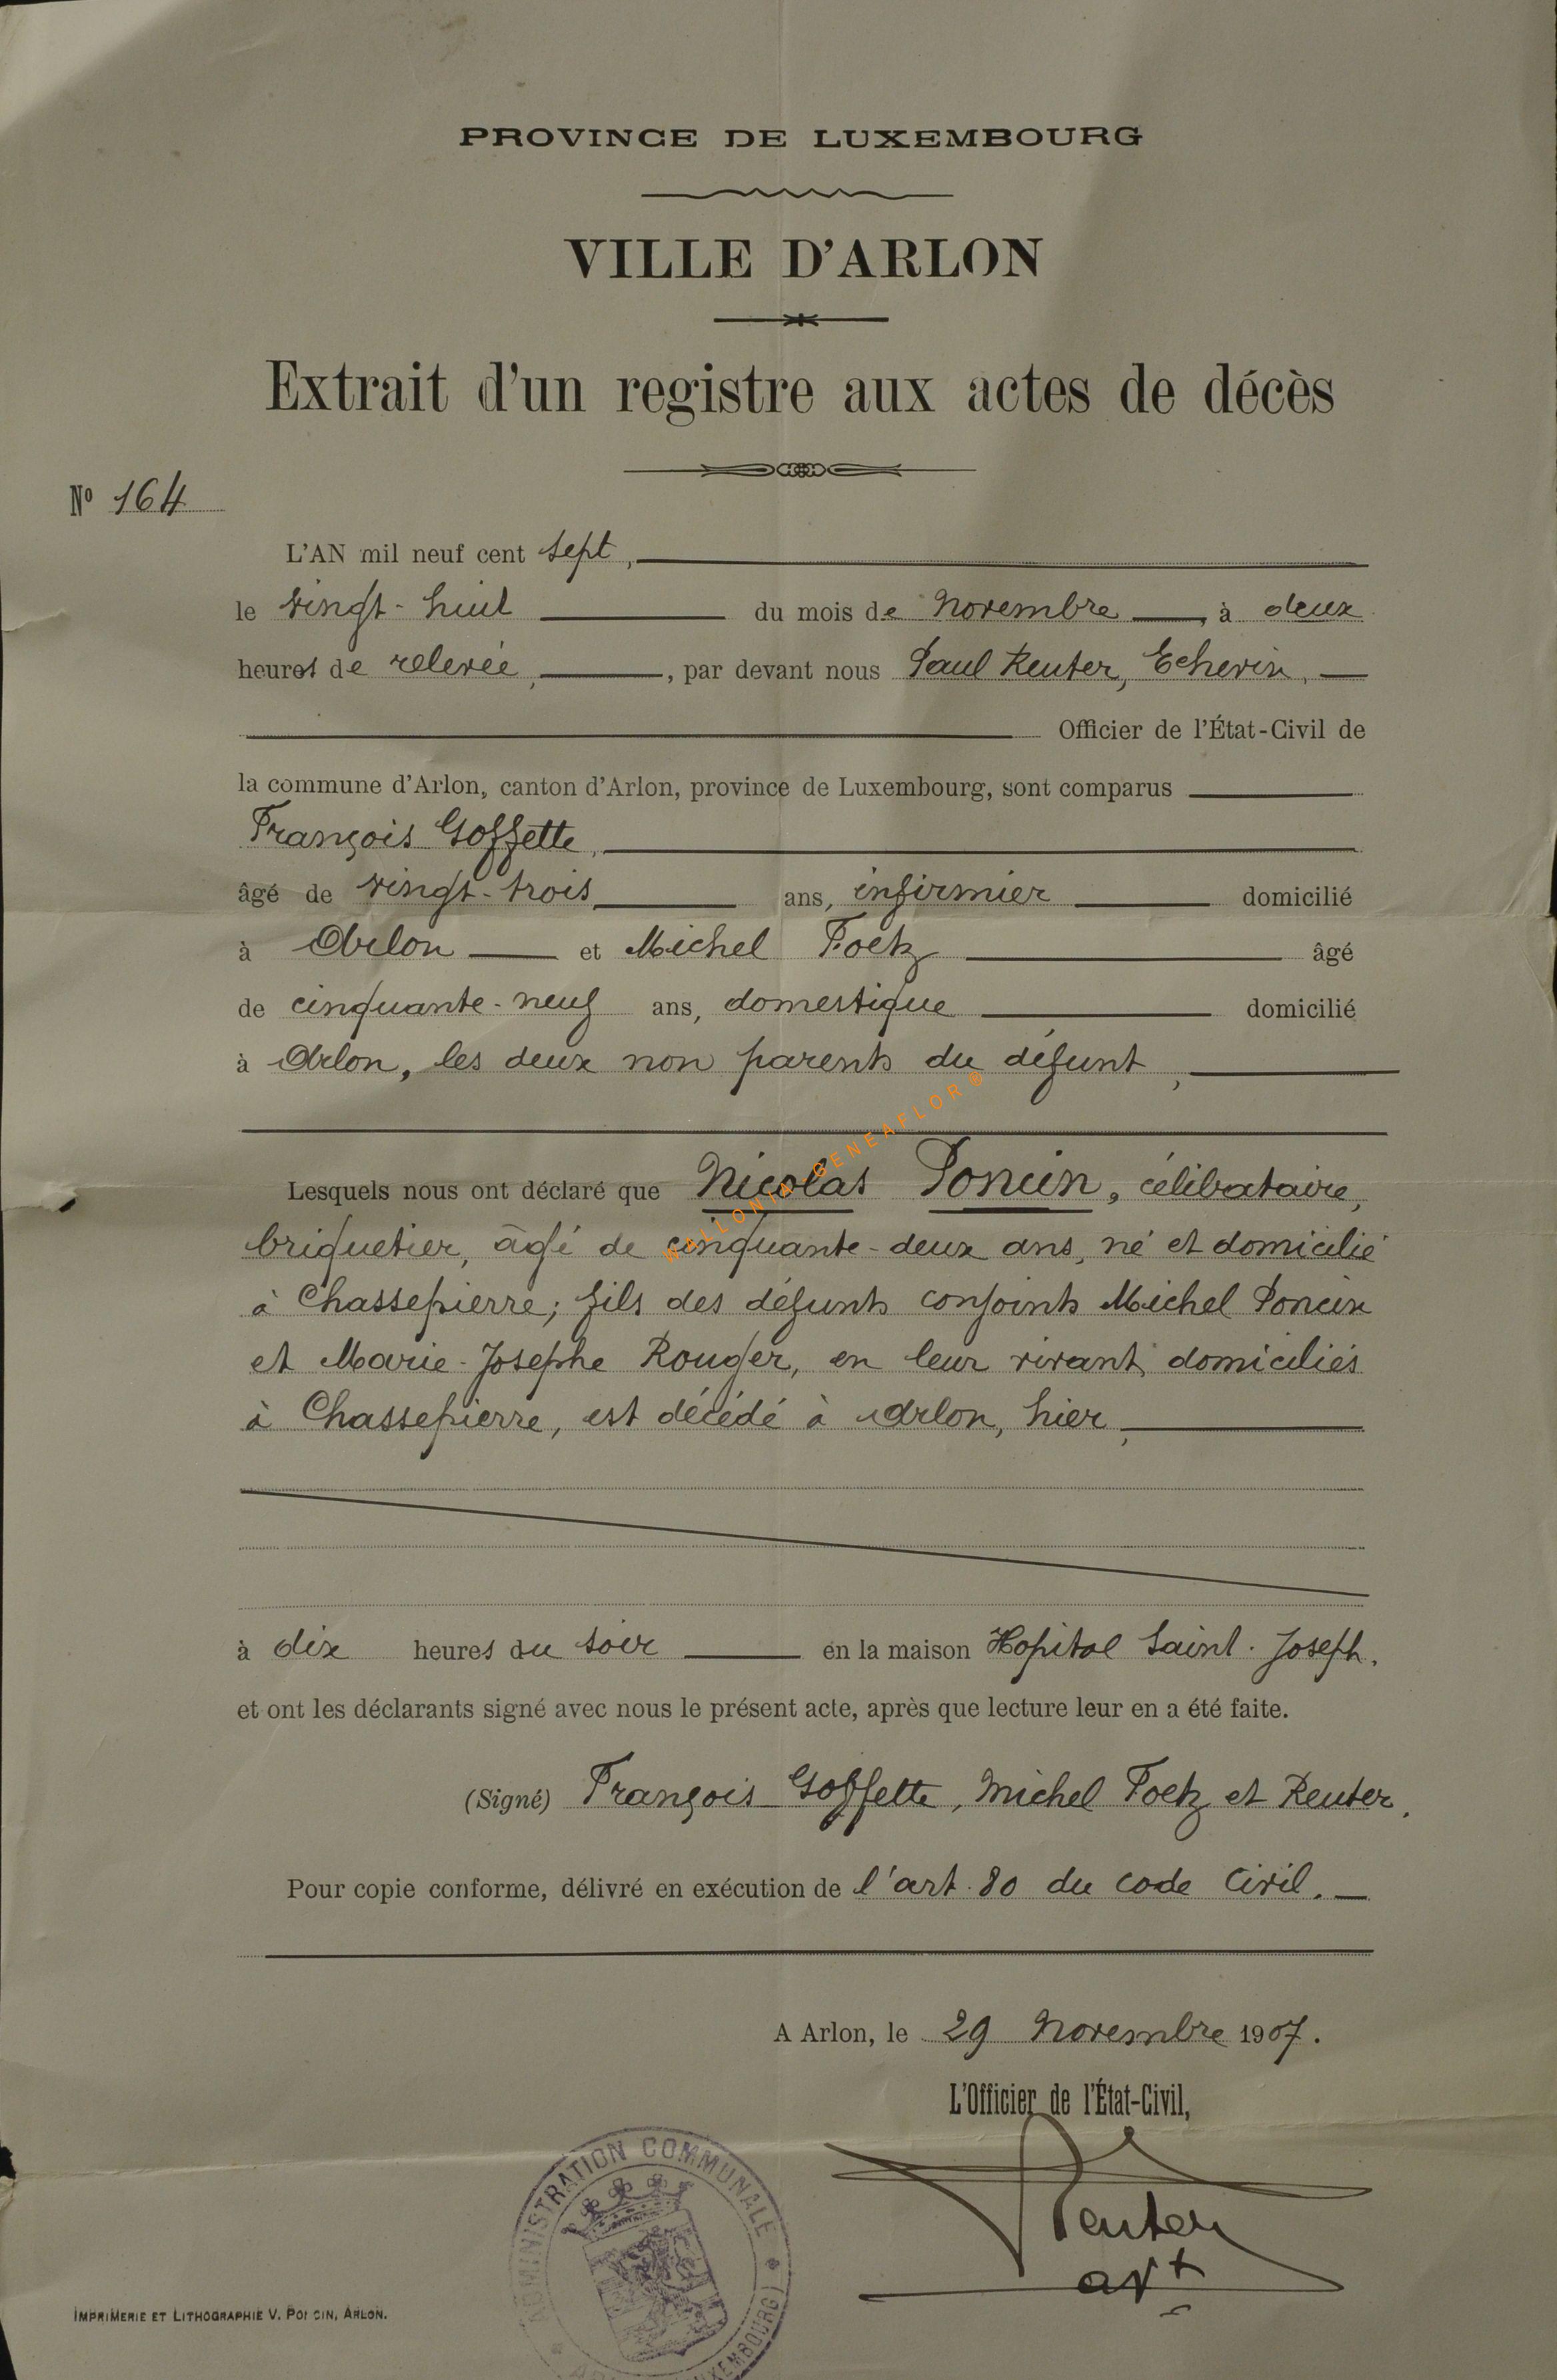 PROVINCE DE LUXEMBOURG
VILLE D'ARLON
Extrait d'un registre aux actes de décès
N° 164
L'AN mil neuf cent sept,
le vingt-huit du mois de Novembre, à deux
heures de relevée, par devant nous Paul Reuter, Echevin,
Officier de l'État-Civil de
la commune d'Arlon, canton d'Arlon, province de Luxembourg, sont comparus
François Goffette,
âgé de vingt-trois ans, infirmier domicilié
à Arlon et Michel Foetz âgé
de cinquante-neuf ans, domestique domicilié
à Arlon, les deux non parents du défunt,
Lesquels nous ont déclaré que Nicolas Poncin, célibataire,
briquetier, âgé de cinquante-deux ans, né et domicilié
à Chassepierre; fils des défunts conjoints Michel Poncin
et Marie-Josephe Rouger, en leur vivant domiciliés
à Chassepierre, est décédé à Arlon, hier,
à dix heures du soir en la maison Hopital Saint-Joseph.
et ont les déclarants signé avec nous le présent acte, après que lecture leur en a été faite.
(Signé) François Goffette, Michel Foetz et Reuter.
Pour copie conforme, délivré en exécution de l'art. 80 du code Civil.
A Arlon, le 29 Novembre 1907.
L'Officier de l'État-Civil,
Reuter
ADMINISTRATION COMMUNALE
LUXEMBOURG)
IMPRIMERIE ET LITHOGRAPHIE V. PONCIN, ARLON.
WALLONIA GENEAFLOR®